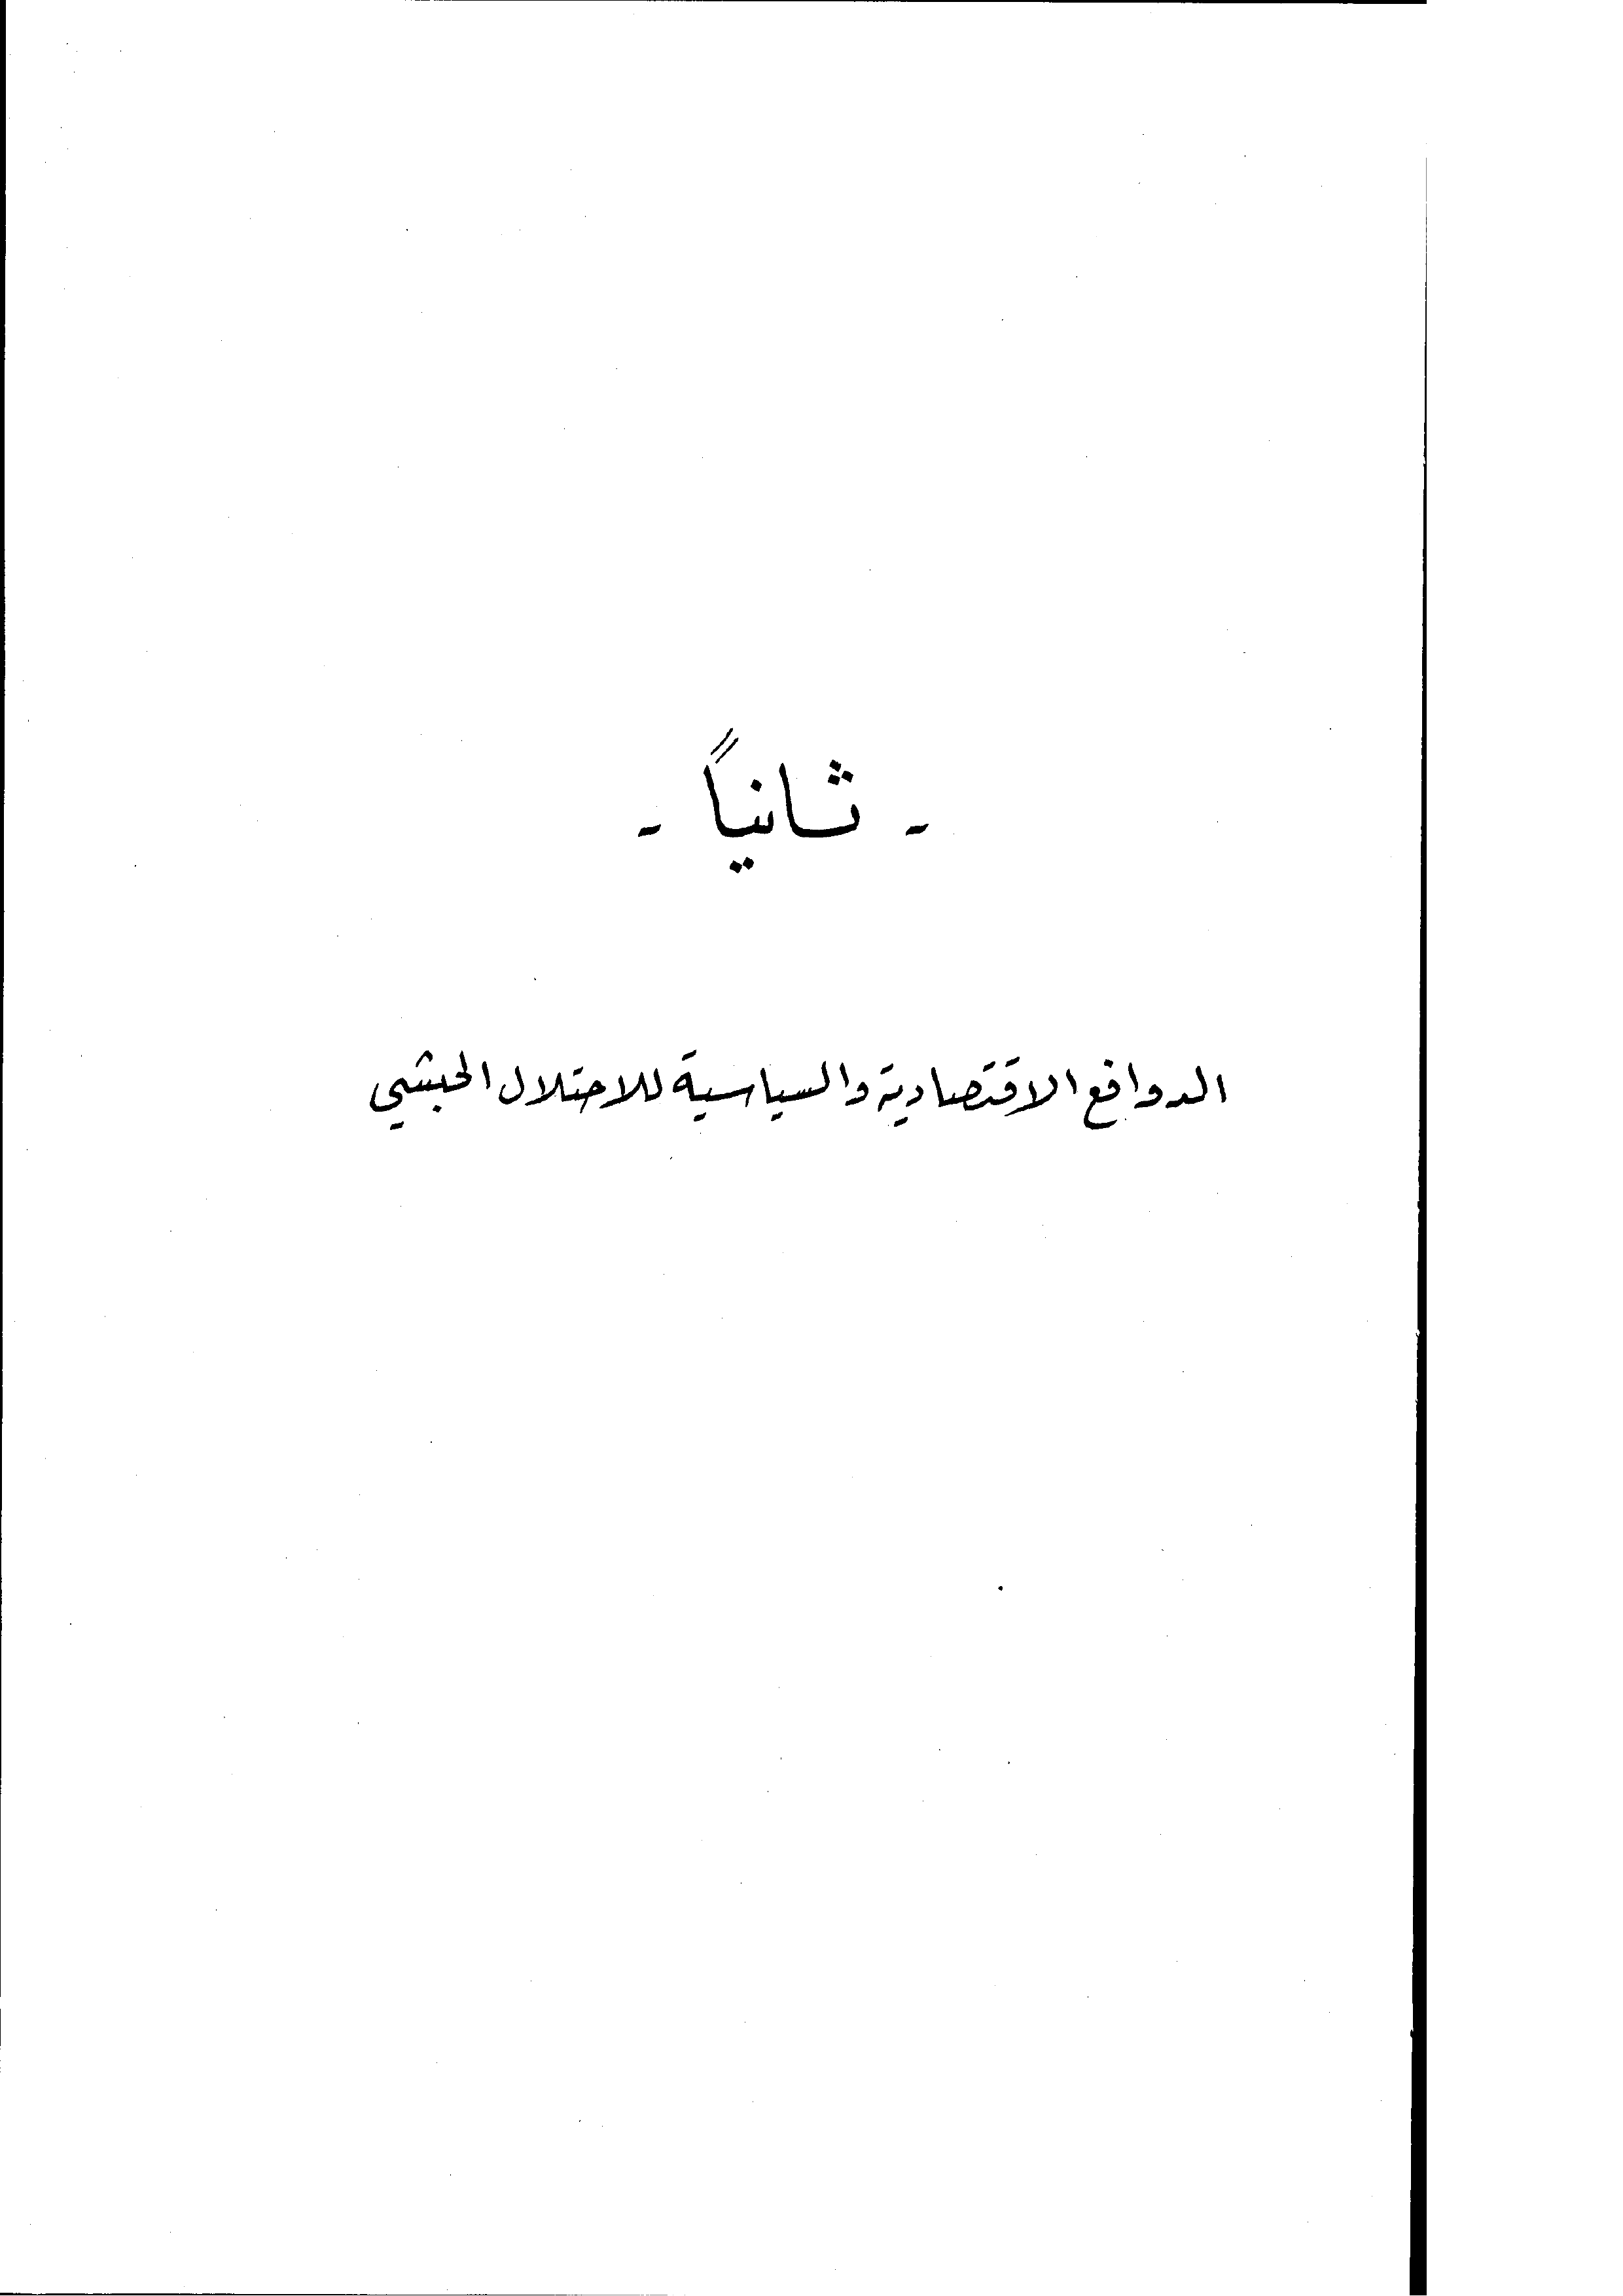 - ثانياً -
الدوافع الاقتصادية والسياسية للاحتلال الحبشي